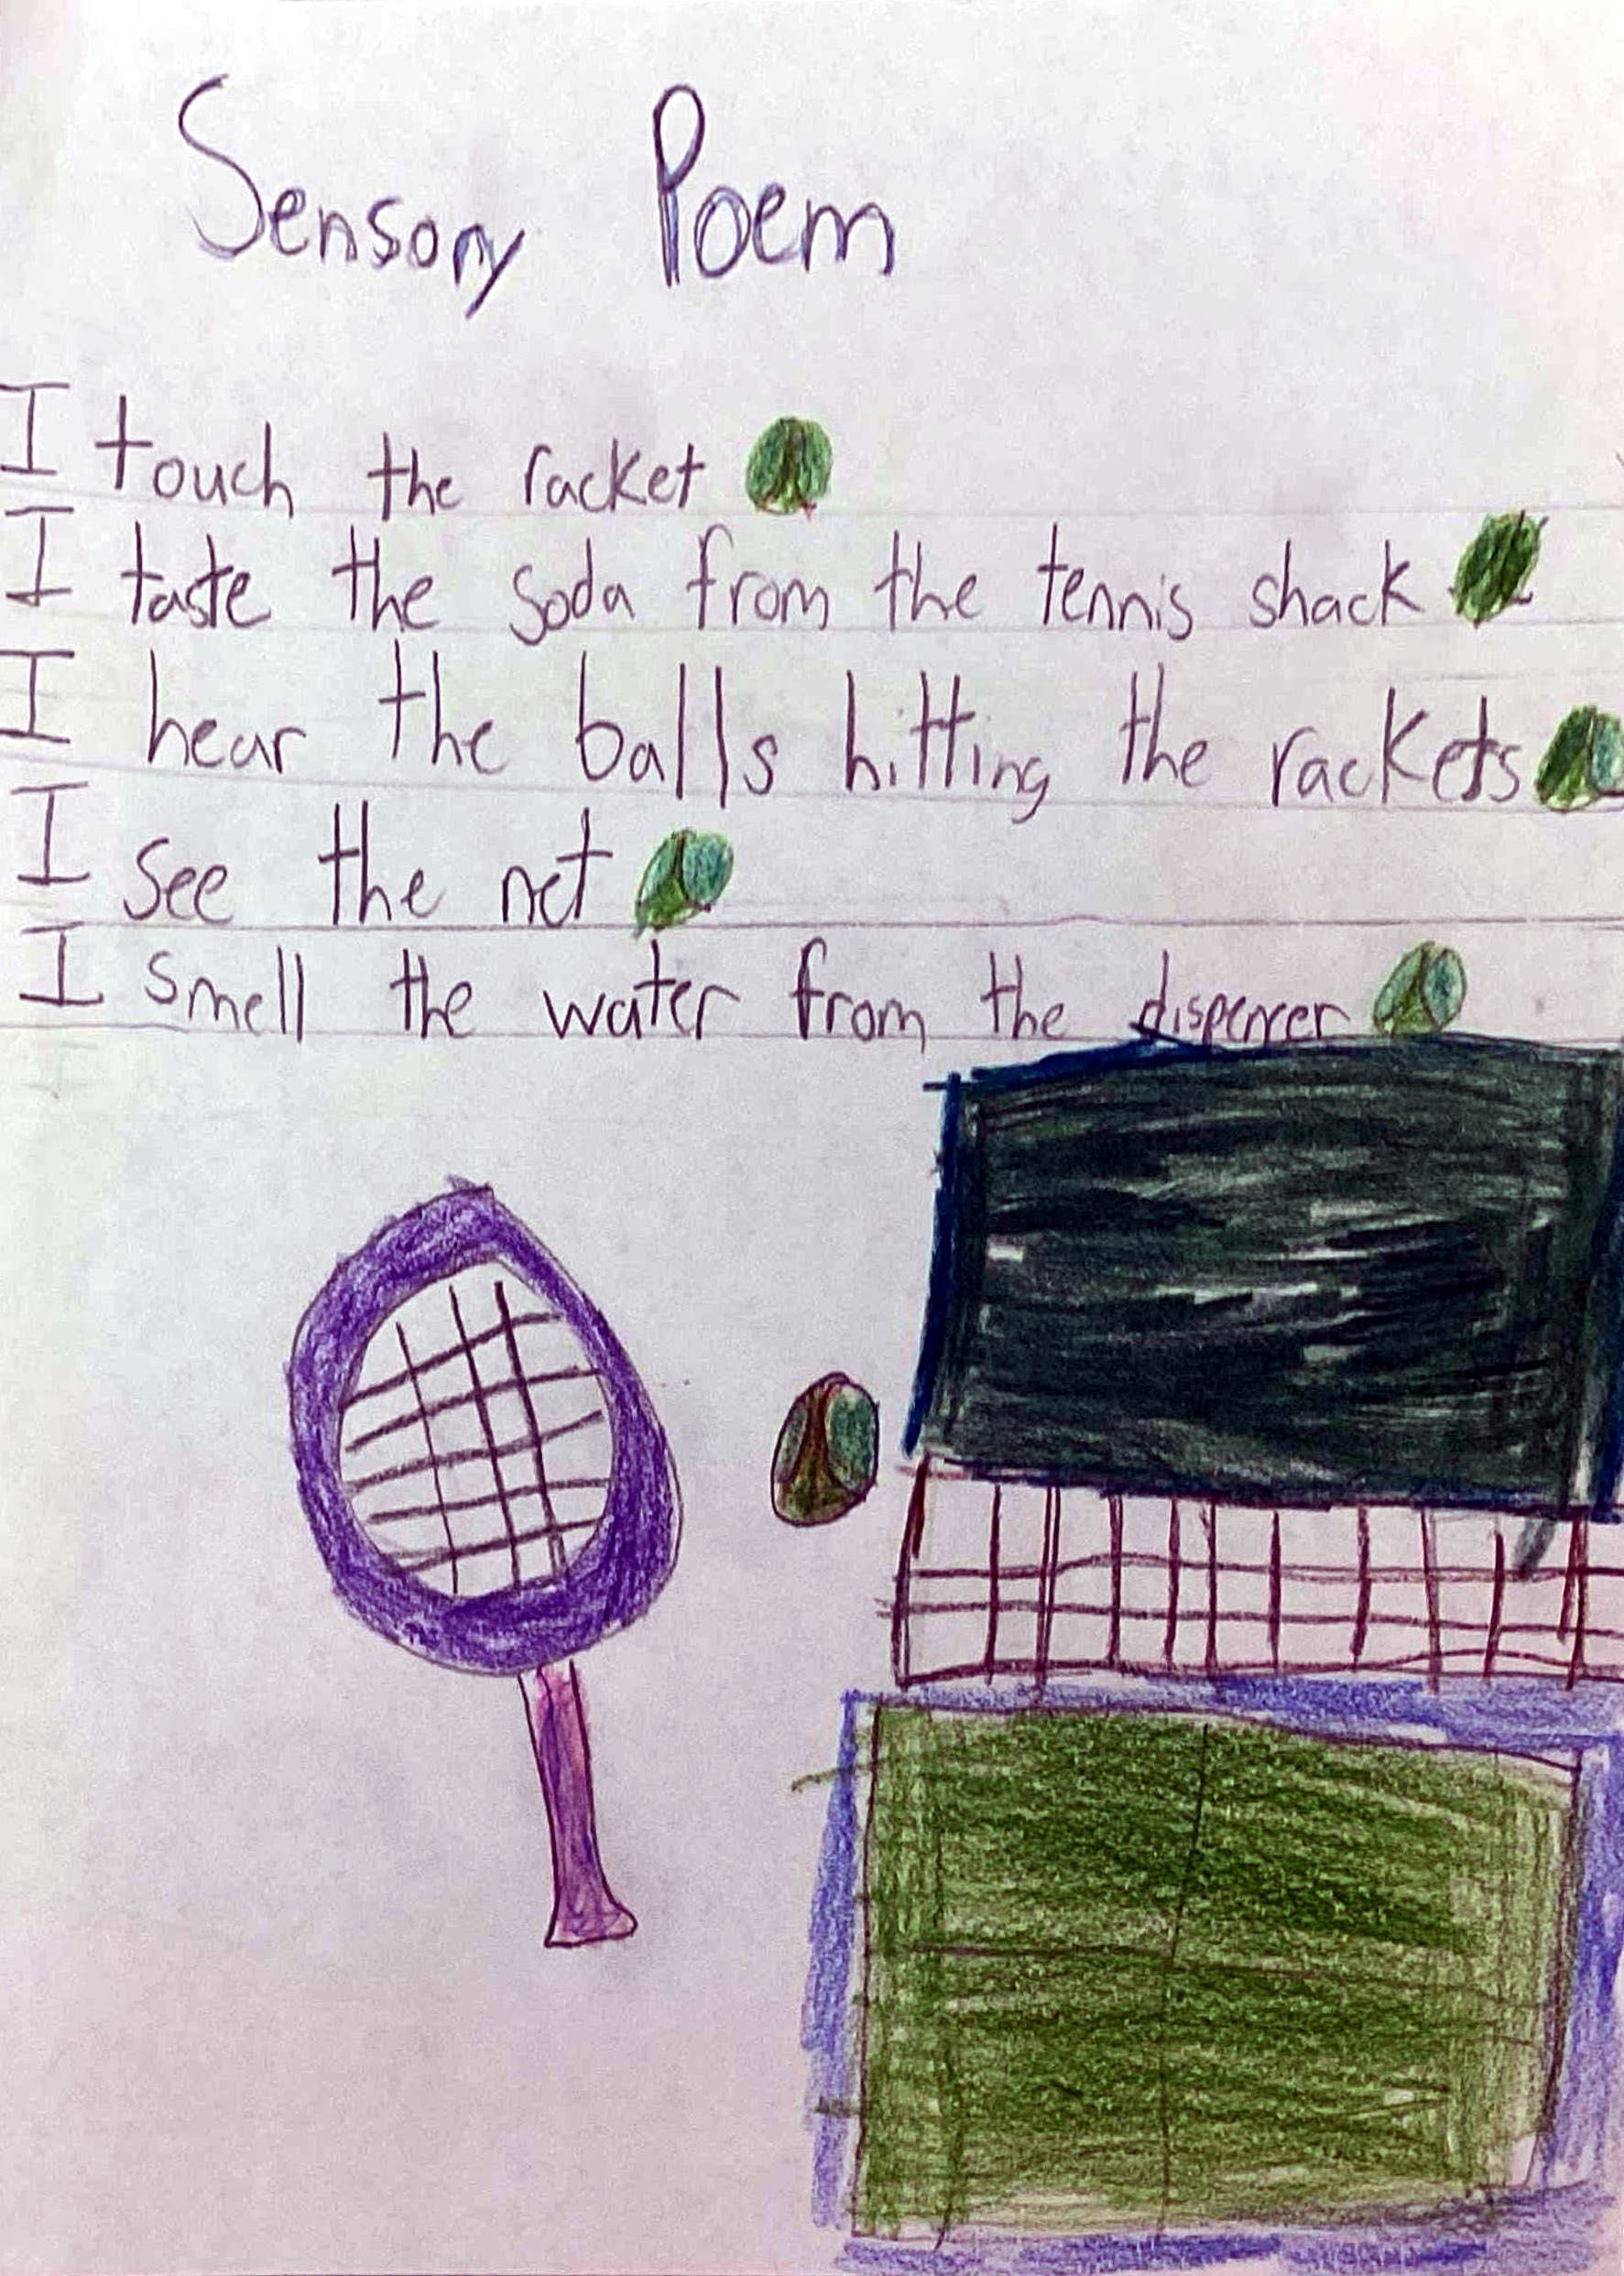 Sensory Poem
I touch the racket
I taste the soda from the tennis shack
I hear the balls hitting the rackets
I see the net
I smell the water from the dispencer